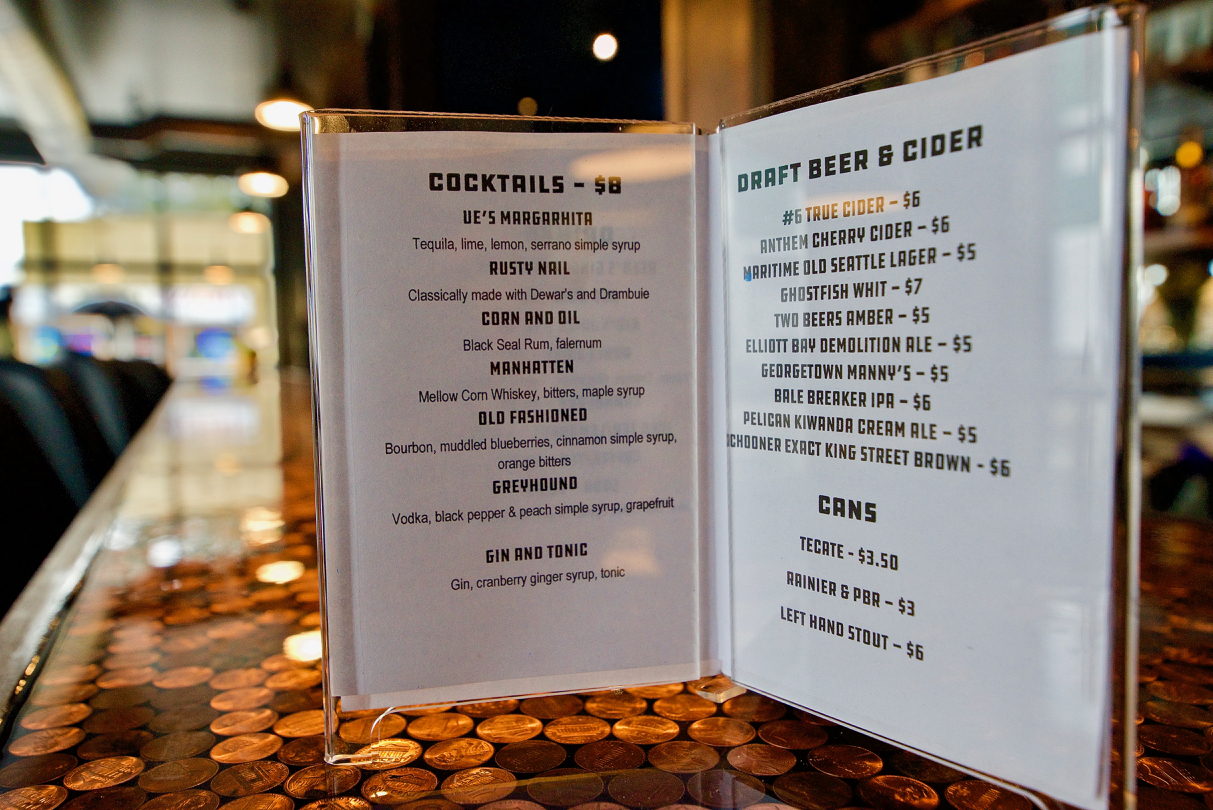 COCKTAILS - $8
UE'S MARGARHITA
Tequila, lime, lemon, serrano simple syrup
RUSTY NAIL
Classically made with Dewar's and Drambuie
CORN AND OIL
Black Seal Rum, falernum
MANHATTEN
Mellow Corn Whiskey, bitters, maple syrup
OLD FASHIONED
Bourbon, muddled blueberries, cinnamon simple syrup,
orange bitters
GREYHOUND
Vodka, black pepper & peach simple syrup, grapefruit
GIN AND TONIC
Gin, cranberry ginger syrup, tonic
DRAFT BEER & CIDER
#6 TRUE CIDER - $6
ANTHEM CHERRY CIDER - $6
MARITIME OLD SEATTLE LAGER - $5
GHOSTFISH WHIT - $7
TWO BEERS AMBER - $5
ELLIOTT BAY DEMOLITION ALE - $5
GEORGETOWN MANNY'S - $5
BALE BREAKER IPA - $6
PELICAN KIWANDA CREAM ALE - $5
SCHOONER EXACT KING STREET BROWN - $6
CANS
TECATE - $3.50
RAINIER & PBR - $3
LEFT HAND STOUT - $6